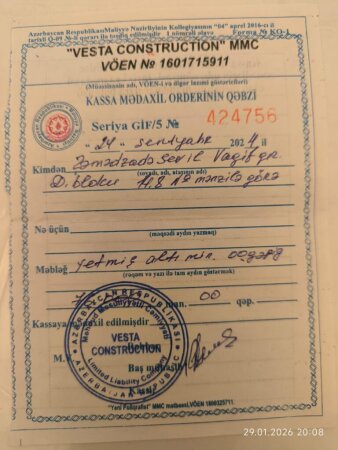 Azərbaycan Respublikası Maliyyə Nazirliyinin Kollegiyasının "04" aprel 2016-cı il
tarixli Q-09 №-li qərarı ilə təsdiq edilmişdir 1 nömrəli əlavə Forma № KO-1
"VESTA CONSTRUCTION" MMC
VÖEN № 1601715911
(Müəssisənin adı, VÖEN-i və digər lazımi göstəriciləri)
KASSA MƏDAXİL ORDERİNİN QƏBZİ
Seriya GİF/5 № 424756
"24" sentyabr 2024 il
Kimdən Səmədzadə Sevil Vaqif qızı
(soyadı, adı, atasının adı)
D. bloku № mənzilə görə
Nə üçün
(məqsədi aydın yazmaq)
Məbləğ yetmiş altı min. 00 qəp
(rəqəm və yazı ilə tam aydın göstərmək)
man. 00 qəp.
Kassaya mədaxil edilmişdir
M.Y.
Baş mühasib
Kassir
AZƏRBAYCAN RESPUBLİKASI
Məhdud Məsuliyyətli Cəmiyyəti
VESTA
CONSTRUCTION
Limited Liability Company
AZERBAIJAN REPUBLIC
"Yeni Poliqrafist" MMC mətbəəsi, VÖEN 1600325711.
29.01.2026 20:08